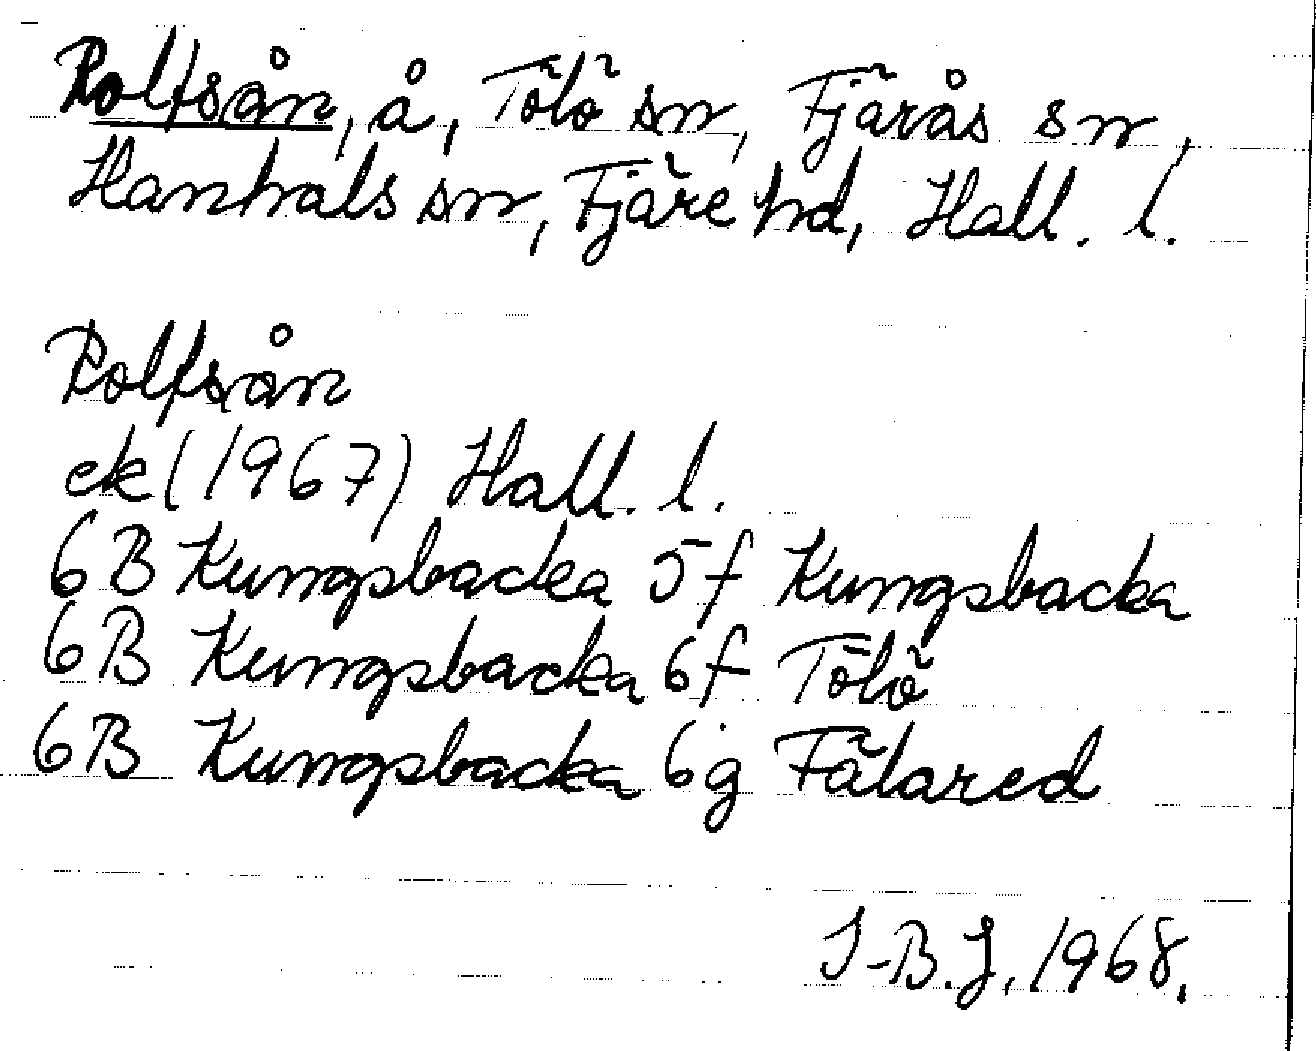 Rolfsån, å, Tölö sn, Fjärås sn,
Hanhals sn, Fjäre hd, Hall. l.
Rolfsån
ek (1967) Hall. l.
6B Kungsbacka 5f Kungsbacka
6B Kungsbacka 6f Tölö
6B Kungsbacka 6g Fälared
I-B.J. 1968.